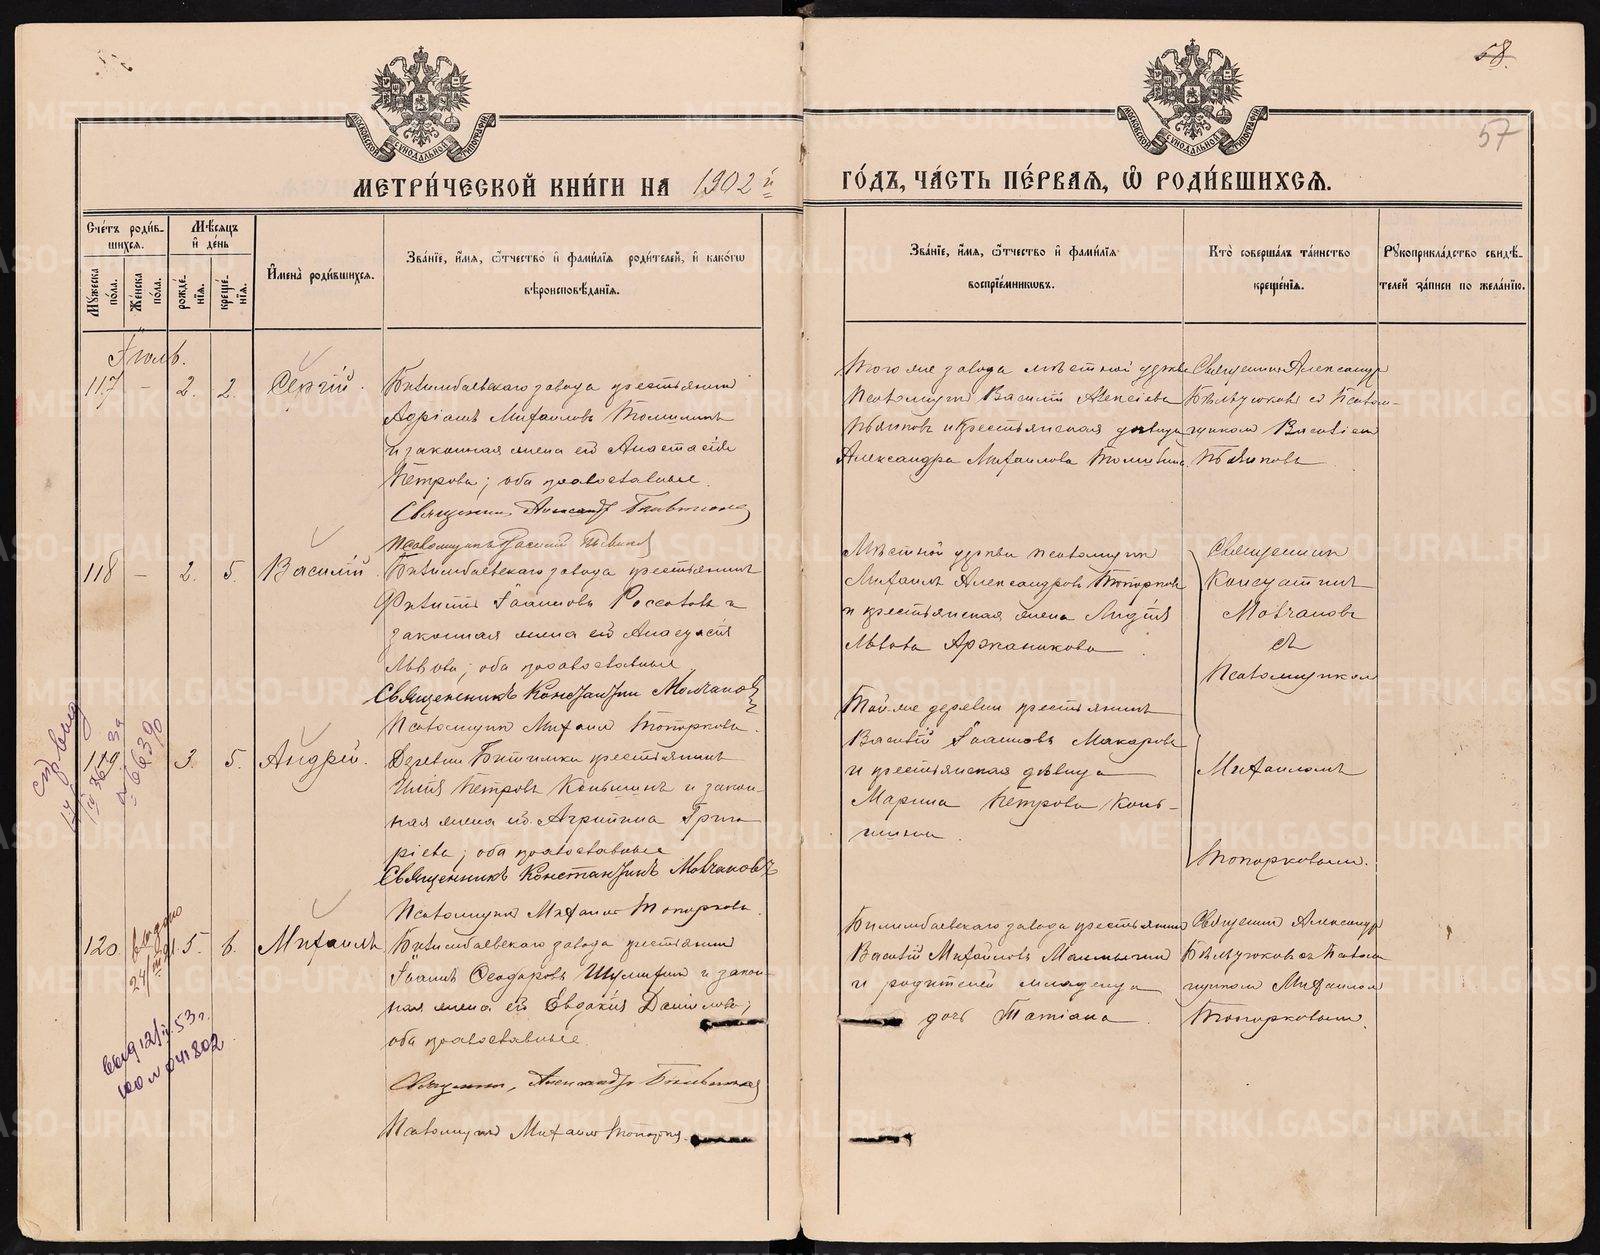 58.
57
МЕТРИ́ЧЕСКОЙ КНИ́ГИ НА 1902 й
ГО́ДЪ, ЧА́СТЬ ПЕ́РВАѦ, Ѽ РОДИ́ВШИХСѦ.
Счéтъ роди́в-
шихсѧ.
Мꙋжеска по́ла.
Же́нска по́ла.
Мѣ́сѧцъ и҆ де́нь
рожде́-нїѧ.
креще́-нїѧ.
И҆мена̀ роди́вшихсѧ.
Зва́нїе, и҆́мѧ, ѻ҆́тчество и҆ фами́лїѧ роди́телей, и҆ како́гѡ
вѣроисповѣ́данїѧ.
Зва́нїе, и҆́мѧ, ѻ҆́тчество и҆ фами́лїѧ
воспрїе́мникѡвъ.
Кто̀ соверша́лъ та́инство
креще́нїѧ.
Рꙋкоприкла́дство свидѣ́-
телей за́писи по жела́нїю.
Іюль.
117 – 2. 2. Сергій.
Билимбаевскаго завода крестьянинъ
Адріанъ Михаиловъ
и законная жена его Анастасія
Петрова; оба православные.
Священникъ Александръ
Псаломщикъ Василій
Того же завода мѣстной церкви
Псаломщикъ Василій Алексіевъ
и крестьянская дѣвица
Александра Михаилова
Священникъ Александръ
съ Псалом-
щикомъ Василіемъ
118 – 2. 5. Василій.
Билимбаевскаго завода крестьянинъ
Іоанновъ и
законная жена его Анастасія
Львова; оба православные.
Священникъ Константинъ Молчановъ
Псаломщикъ Михаилъ Топорковъ.
Мѣстной церкви псаломщикъ
Михаилъ Александровъ Топорковъ
и крестьянская жена Лидія
Львова Аржанникова.
Священникъ
Константинъ
Молчановъ
съ
Псаломщикомъ
Михаиломъ
Топорковымъ.
119 3. 5. Андрей.
Деревни Битимки крестьянинъ
Илія Петровъ Коньшинъ и закон-
ная жена его Агрипина Григо-
ріева; оба православные
Священникъ Константинъ Молчановъ
Псаломщикъ Михаилъ Топорковъ.
Той же деревни крестьянинъ
Василій Іоанновъ Макаровъ
и крестьянская дѣвица
Марина Петрова Конь-
шина.
120. 5. 6. Михаилъ
Билимбаевскаго завода крестьянинъ
Іоаннъ Ѳеодоровъ Шулятинъ и закон-
ная жена его Евдокія Даніилова;
оба православные.
Священникъ, Александръ
Псаломщикъ Михаилъ Топорковъ.
Билимбаевскаго завода крестьянинъ
Василій Михаиловъ
и родителей младенца
дочь Татіана
Священникъ Александръ
съ Псалом-
щикомъ Михаиломъ
Топорковымъ.
выдано
24/
выд 12/ 53 г.
№ 041802
METRIKI.GASO-URAL.RU